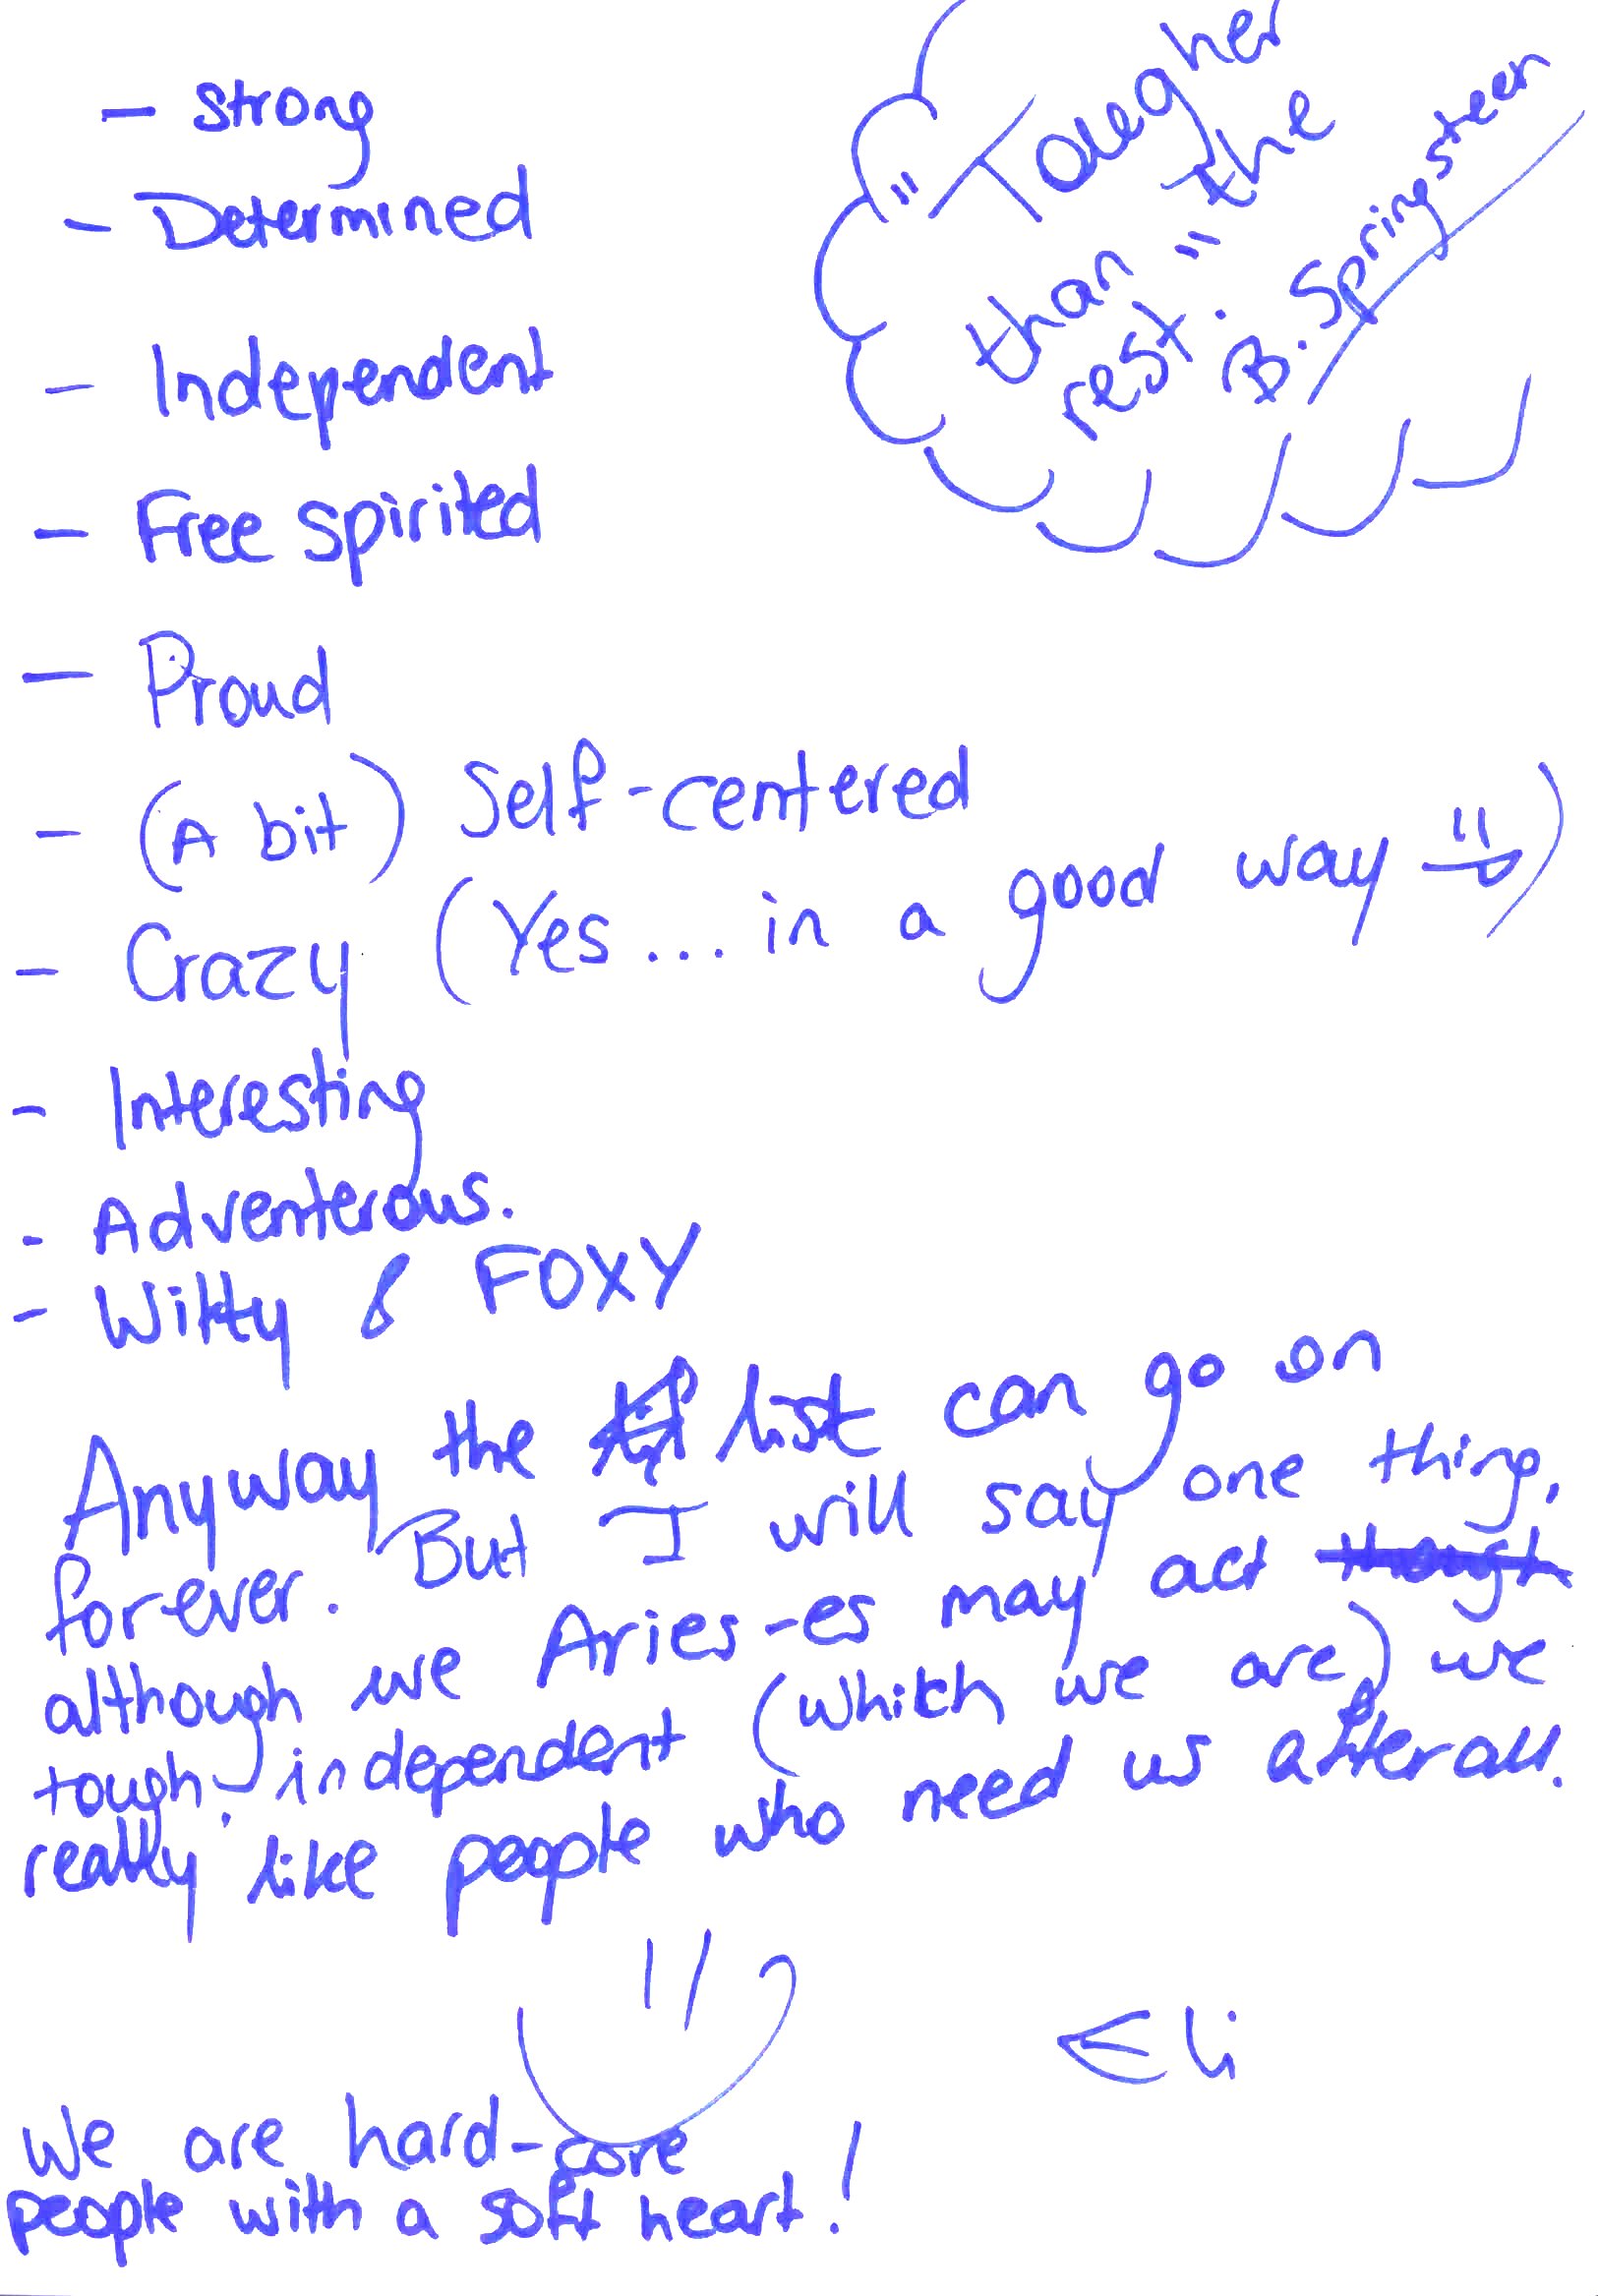 - Strong
- Determined
- Independent
- Free spirited
- Proud
- (A bit) Self-centered
- Crazy (Yes... in a good way =))
- Interesting
- Adventerous.
- Witty & FOXY
"Tougher
than the
rest."
B. Springsteen
Anyway the list can go on
forever. But I will say one thing,
although we Aries-es may act though
tough, independent (which we are) we
really like people who need us after all.
Eli
We are hard-core
people with a soft heart!